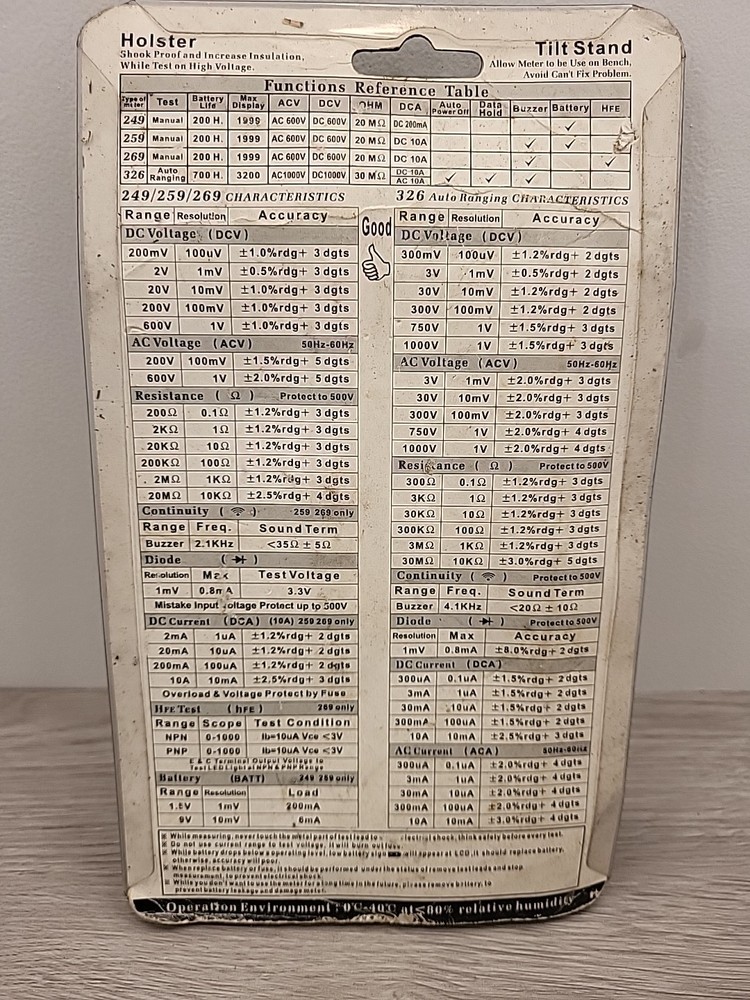 Holster
Shook Proof and Increase Insulation,
While Test on High Voltage.
Tilt Stand
Allow Meter to be Use on Bench,
Avoid Can't Fix Problem.
Functions Reference Table
Type of meter Test Battery Life Max Display ACV DCV OHM DCA Auto Power Off Data Hold Buzzer Battery HFE
249 Manual 200 H. 1999 AC 600V DC 600V 20 MΩ DC 200mA ✓
259 Manual 200 H. 1999 AC 600V DC 600V 20 MΩ DC 10A ✓ ✓
269 Manual 200 H. 1999 AC 600V DC 600V 20 MΩ DC 10A ✓ ✓
326 Auto Ranging 700 H. 3200 AC1000V DC1000V 30 MΩ DC 10A AC 10A ✓ ✓ ✓
249/259/269 CHARACTERISTICS
Range Resolution Accuracy
DC Voltage (DCV)
200mV 100uV ±1.0%rdg+ 3 dgts
2V 1mV ±0.5%rdg+ 3 dgts
20V 10mV ±1.0%rdg+ 3 dgts
200V 100mV ±1.0%rdg+ 3 dgts
600V 1V ±1.0%rdg+ 3 dgts
AC Voltage (ACV) 50Hz-60Hz
200V 100mV ±1.5%rdg+ 5 dgts
600V 1V ±2.0%rdg+ 5 dgts
Resistance ( Ω ) Protect to 500V
200Ω 0.1Ω ±1.2%rdg+ 3 dgts
2KΩ 1Ω ±1.2%rdg+ 3 dgts
20KΩ 10Ω ±1.2%rdg+ 3 dgts
200KΩ 100Ω ±1.2%rdg+ 3 dgts
2MΩ 1KΩ ±1.2%rdg+ 3 dgts
20MΩ 10KΩ ±2.5%rdg+ 4 dgts
Continuity ( ) 259 269 only
Range Freq. Sound Term
Buzzer 2.1KHz <35Ω ± 5Ω
Diode ( )
Resolution Max Test Voltage
1mV 0.8mA 3.3V
Mistake Input Voltage Protect up to 500V
DC Current (DCA) (10A) 259 269 only
2mA 1uA ±1.2%rdg+ 2 dgts
20mA 10uA ±1.2%rdg+ 2 dgts
200mA 100uA ±1.2%rdg+ 2 dgts
10A 10mA ±2.5%rdg+ 3 dgts
Overload & Voltage Protect by Fuse
HFE Test (hFE) 269 only
Range Scope Test Condition
NPN 0-1000 Ib=10uA Vce <3V
PNP 0-1000 Ib=10uA Vce <3V
E & C Terminal Output Voltage to
Test LED Light at NPN & PNP Range
Battery (BATT) 249 259 only
Range Resolution Load
1.5V 1mV 200mA
9V 10mV 6mA
Good
326 Auto Ranging CHARACTERISTICS
Range Resolution Accuracy
DC Voltage (DCV)
300mV 100uV ±1.2%rdg+ 2 dgts
3V 1mV ±0.5%rdg+ 2 dgts
30V 10mV ±1.2%rdg+ 2 dgts
300V 100mV ±1.2%rdg+ 2 dgts
750V 1V ±1.5%rdg+ 3 dgts
1000V 1V ±1.5%rdg+ 3 dgts
AC Voltage (ACV) 50Hz-60Hz
3V 1mV ±2.0%rdg+ 3 dgts
30V 10mV ±2.0%rdg+ 3 dgts
300V 100mV ±2.0%rdg+ 3 dgts
750V 1V ±2.0%rdg+ 4 dgts
1000V 1V ±2.0%rdg+ 4 dgts
Resistance ( Ω ) Protect to 500V
300Ω 0.1Ω ±1.2%rdg+ 3 dgts
3KΩ 1Ω ±1.2%rdg+ 3 dgts
30KΩ 10Ω ±1.2%rdg+ 3 dgts
300KΩ 100Ω ±1.2%rdg+ 3 dgts
3MΩ 1KΩ ±1.2%rdg+ 3 dgts
30MΩ 10KΩ ±3.0%rdg+ 5 dgts
Continuity ( ) Protect to 500V
Range Freq. Sound Term
Buzzer 4.1KHz <20Ω ± 10Ω
Diode ( ) Protect to 500V
Resolution Max Accuracy
1mV 0.8mA ±8.0%rdg+ 2 dgts
DC Current (DCA)
300uA 0.1uA ±1.5%rdg+ 2 dgts
3mA 1uA ±1.5%rdg+ 2 dgts
30mA 10uA ±1.5%rdg+ 2 dgts
300mA 100uA ±1.5%rdg+ 2 dgts
10A 10mA ±2.5%rdg+ 3 dgts
AC Current (ACA) 50Hz-60Hz
300uA 0.1uA ±2.0%rdg+ 4 dgts
3mA 1uA ±2.0%rdg+ 4 dgts
30mA 10uA ±2.0%rdg+ 4 dgts
300mA 100uA ±2.0%rdg+ 4 dgts
10A 10mA ±3.0%rdg+ 4 dgts
※ While measuring, never touch the metal part of test lead to electrical shock, think safety before every test.
※ Do not use current range to test voltage, it will burn out.
※ While battery drops below operating level, low battery sign will appear at LCD, it should replace battery,
otherwise, accuracy will poor.
※ When replace battery or fuse, it should be performed under the status of remove test leads and stop
measurement, to prevent electrical shock.
※ While you don't want to use the meter for a long time in the future, please remove battery, to
prevent battery leakage and damage meter.
Operation Environment : 0°C-40°C at <80% relative humidity